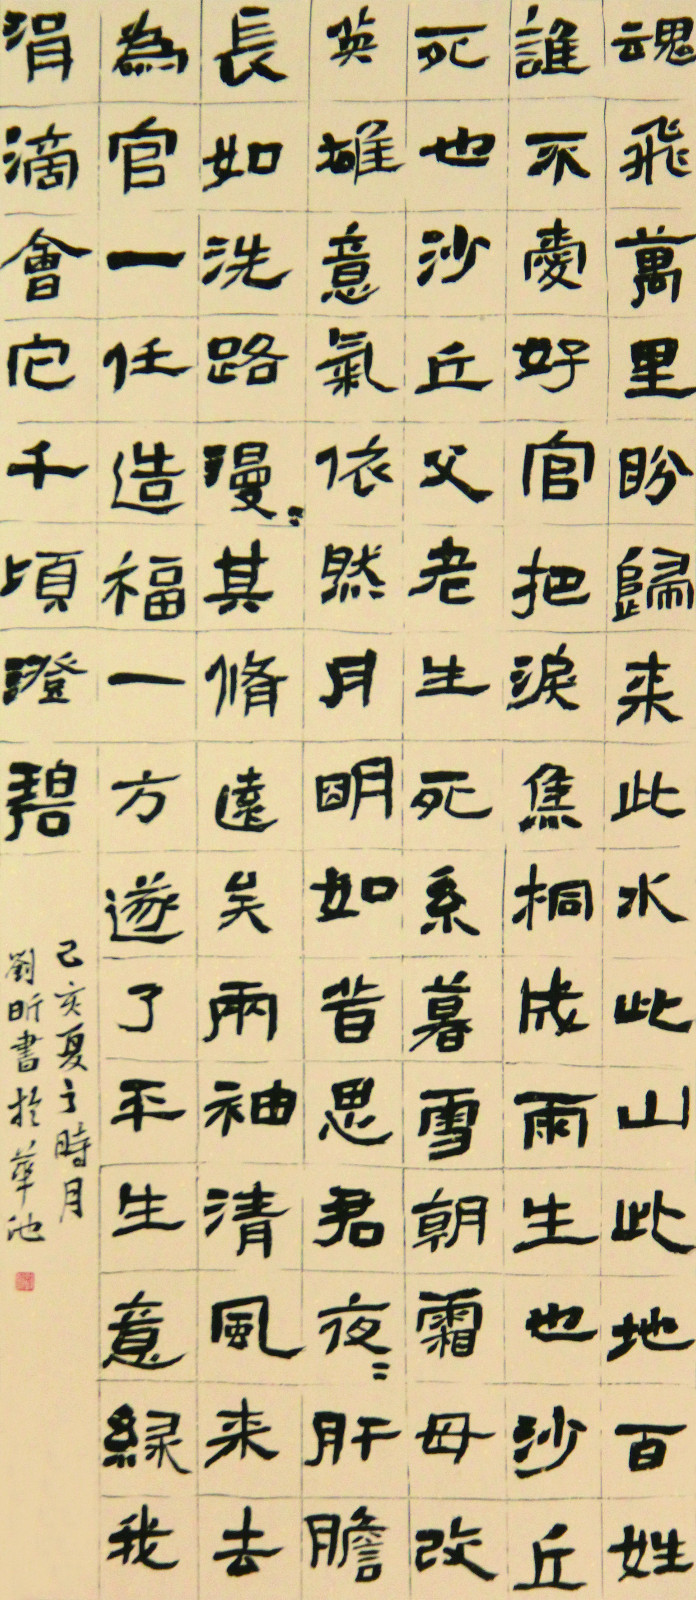 魂飛萬里盼歸来此水此山此地百姓
誰不愛好官把淚焦桐成雨生也沙丘
死也沙丘父老生死系暮雪朝霜毋改
英雄意氣依然月明如昔思君夜〻肝膽
長如洗路漫〻其脩遠矣兩袖清風来去
為官一任造福一方遂了平生意綠我
涓滴會它千頃澄碧
己亥夏之時月
劉昕書於華池